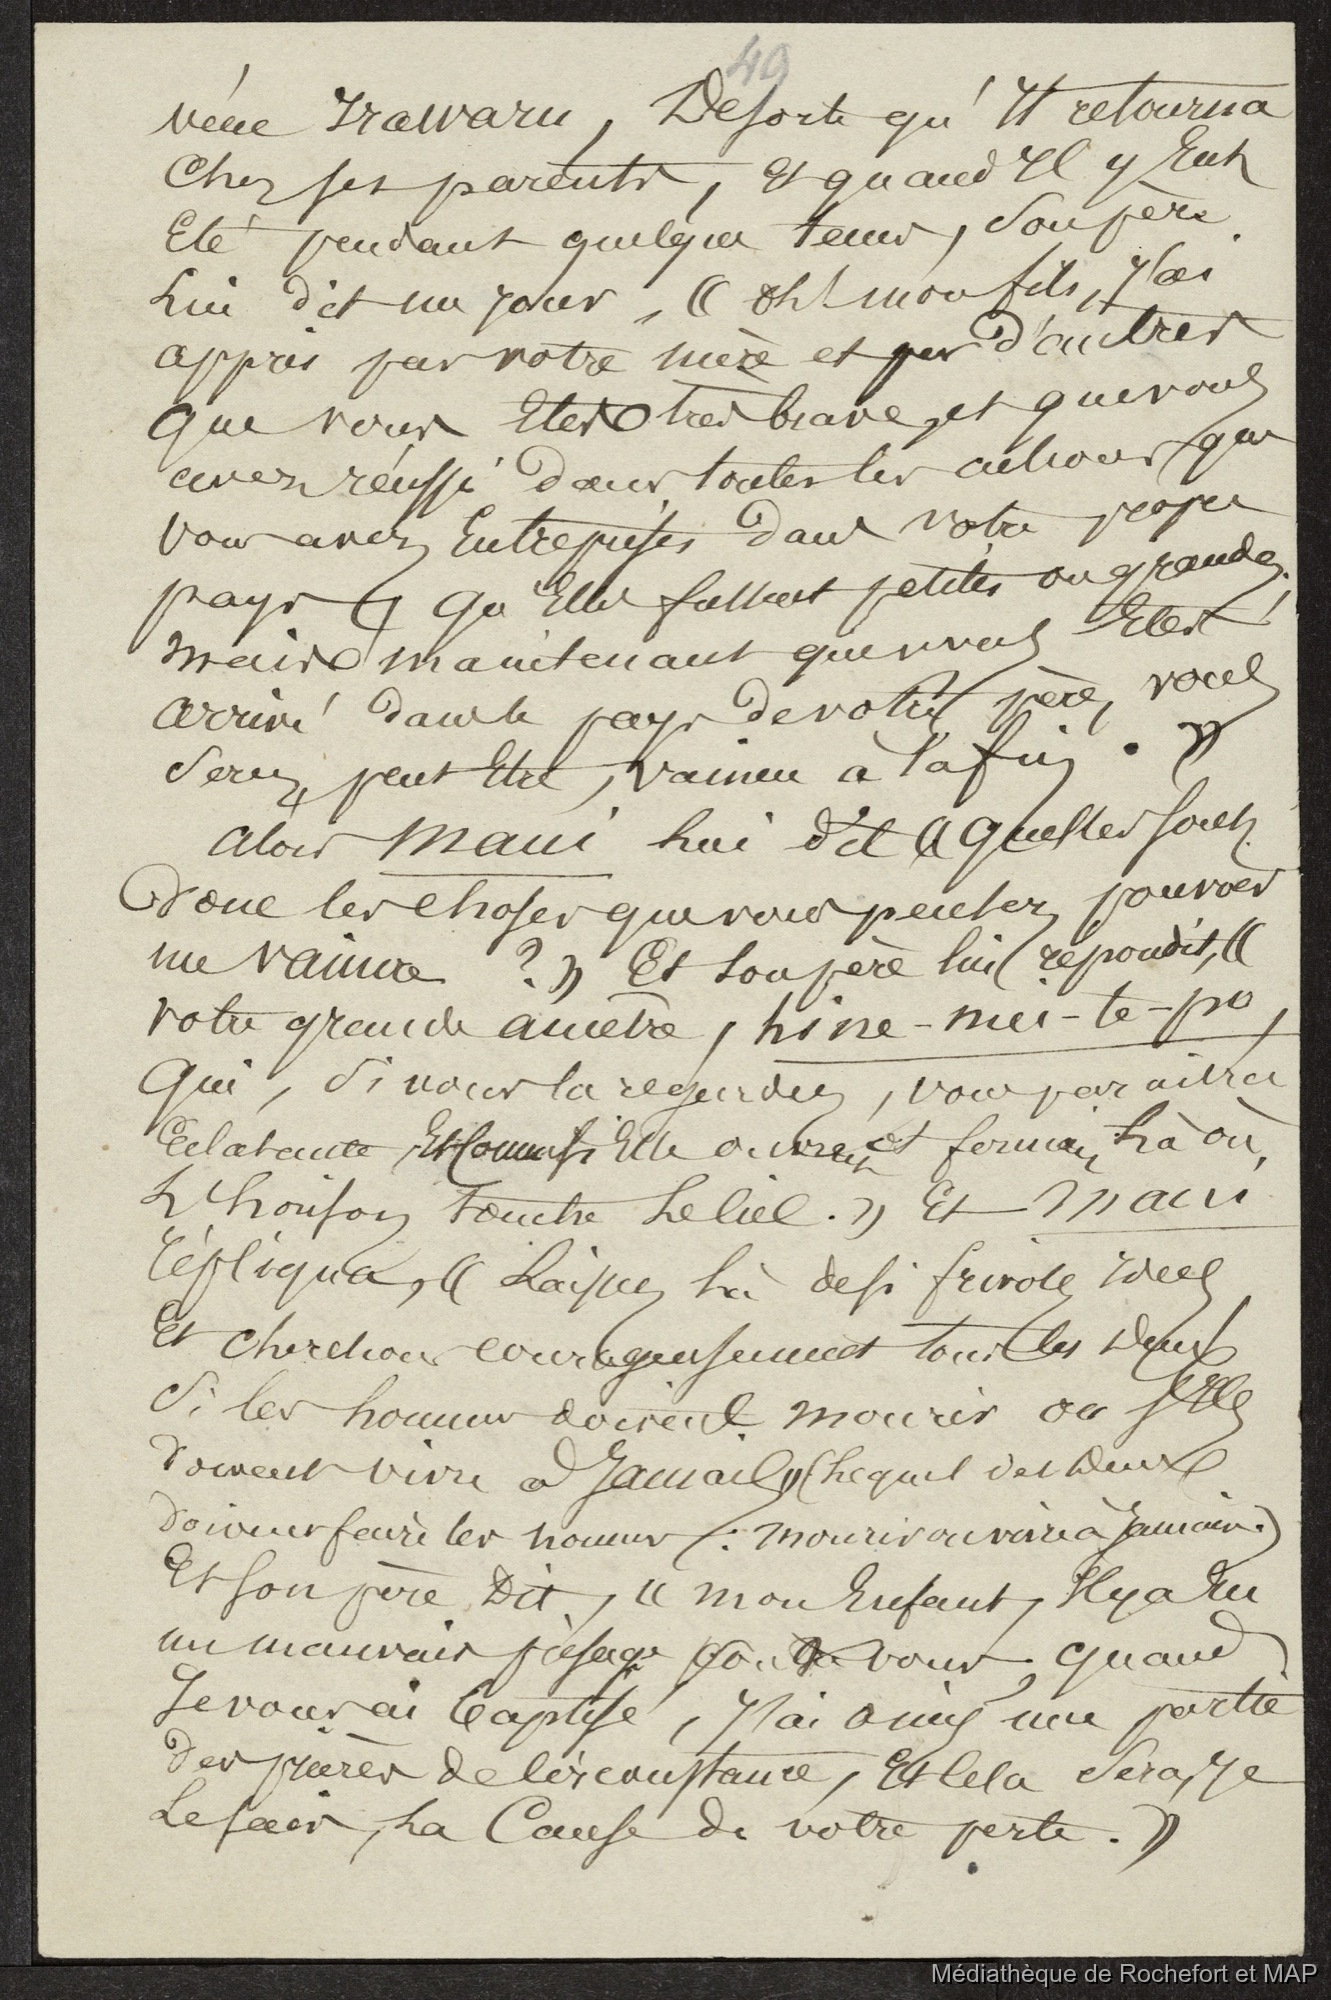 49
véne Irawaru, Desorte qu' Il retourna
Chez ses parents, Et quand Il y Eut
Eté pendant quelque tems, Son père
Lui dit un jour, « Oh! mon fils, J'ai
appris par votre mère et par d'autres
Que vous Etes très brave, et que vous
avez réussi dans toutes les actions que
Vous avez Entreprises dans votre propre
pays, Qu'Elles fussent petites ou grandes.
Mais maintenant que vous Etes
arrivé dans le pays de votre père, vous
Serez, peut Etre, Vaincu à la fin. »
alors Maui Lui dit « Quelles sont
Donc les choses que vous pensez pouvoir
me Vaincre ? » Et Son père lui répondit, «
votre grande ancètre, hine-nui-te-po,
Qui, Si vous la regardez, vous paraitra
Eclatante, Et Comme si Elle ouvrait et fermait, Là où,
L'horison touche Le Ciel. » Et Maui
répliqua, « Laissez là de si frivoles idées
Et cherchons courageusement tous les Deux
Si les hommes doivent mourir ou s'Ils
doivent vivre à Jamais » (Lequel des deux
doivent faire les hommes : mourir ou vivre à Jamais.)
Et Son père Dit, « mon Enfant, Il y a Eu
un mauvais présage pour vous, quand
Je vous ai baptisé, J'ai omis une partie
Des prières de circonstance, Et Cela Sera, Je
Le sais, La Cause de votre perte. »
Médiathèque de Rochefort et MAP